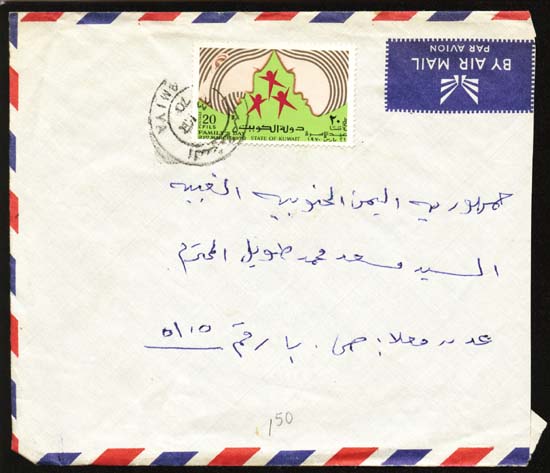 BY AIR MAIL
PAR AVION
20
FILS
٢٠
دولة الكويت
FAMILY DAY
STATE OF KUWAIT
٢١ مارس ١٩٧٠
جمهورية اليمن الجنوبية الشعبية
السيد مسعد محمد طويل المحترم
عدن معلا: ص. ب رقم ٥١١٥
150